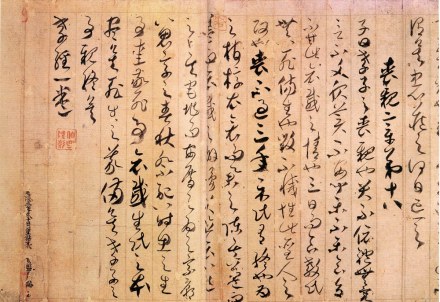 謂矣中心藏之何日忘之
喪親章第十八
子曰孝子之喪親也哭不依禮無容
言不文服美不安聞樂不樂食旨
不甘此哀戚之情也三日而食教民
無以死傷生也毀不滅性此聖人之
政也喪不過三年示民有終也為
之棺椁衣衾而舉之陳其簠簋
而哀戚之擗踊哭泣哀以送
之卜其宅兆而安厝之為之宗廟以
鬼享之春秋祭祀以時思之生
事愛敬死事哀戚生民之本
盡矣死生之義備矣孝子之
事親終矣
孝經一卷